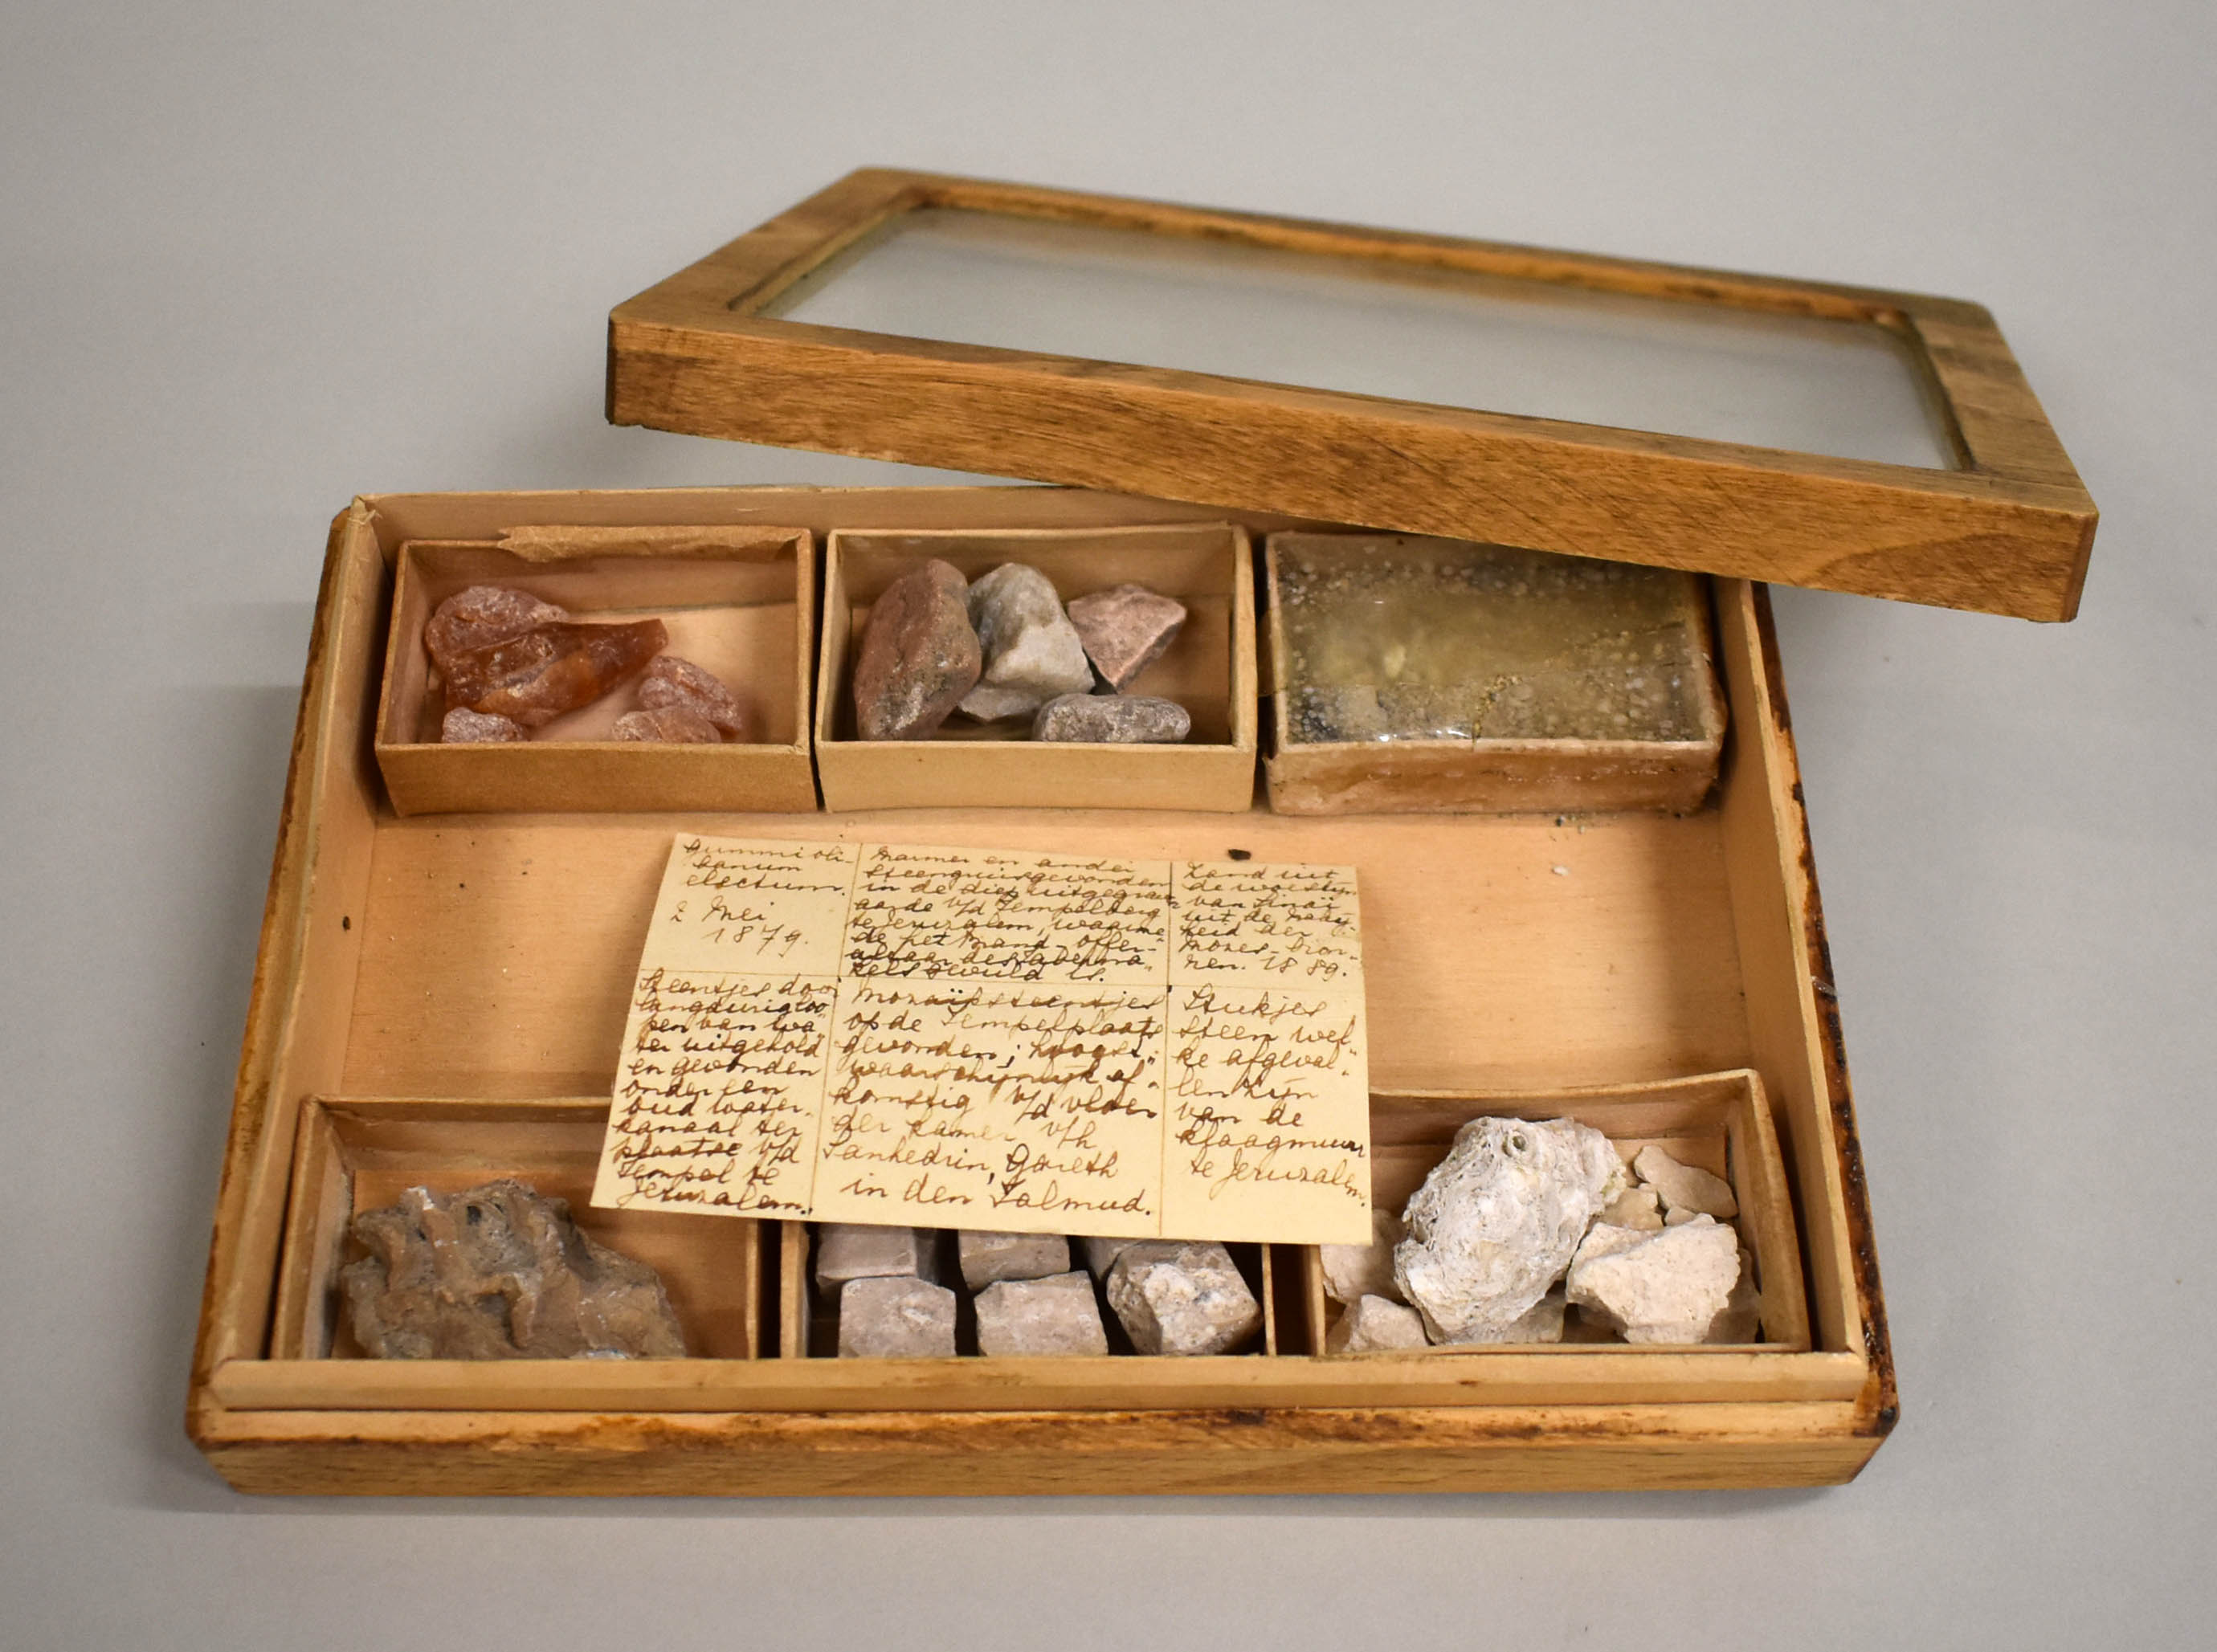 Gummi oli-
banum
electum.
2 Mei
1879.
Marmer en ander
steengruis gevonden
in de diep uitgegraven
aarde v/d Tempelberg
te Jeruzalem, waarme-
de het Brand-offer-
altaar des taberna-
kels gevuld is.
Zand uit
de woestijn
van Sinaï
uit de nabij-
heid der
Mozes-bron-
nen. 1889.
Steentjes door
langdurig loo-
pen van wa-
ter uitgehold
en gevonden
onder een
oud water-
kanaal ter
plaatse v/d
Tempel te
Jeruzalem.
Mozaïksteentjes
op de Tempelplaats
gevonden; hoogst-
waarschijnlijk af-
komstig v/d vloer
der kamer v/h
Sanhedrin, Gasith
in den Talmud.
Stukjes
steen wel-
ke afgeval-
len zijn
van de
klaagmuur
te Jeruzalem.